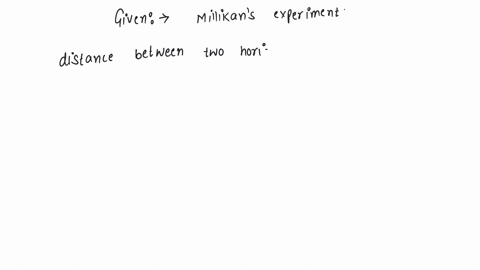 Given:→ Millikan's experiment.
distance between two hori-